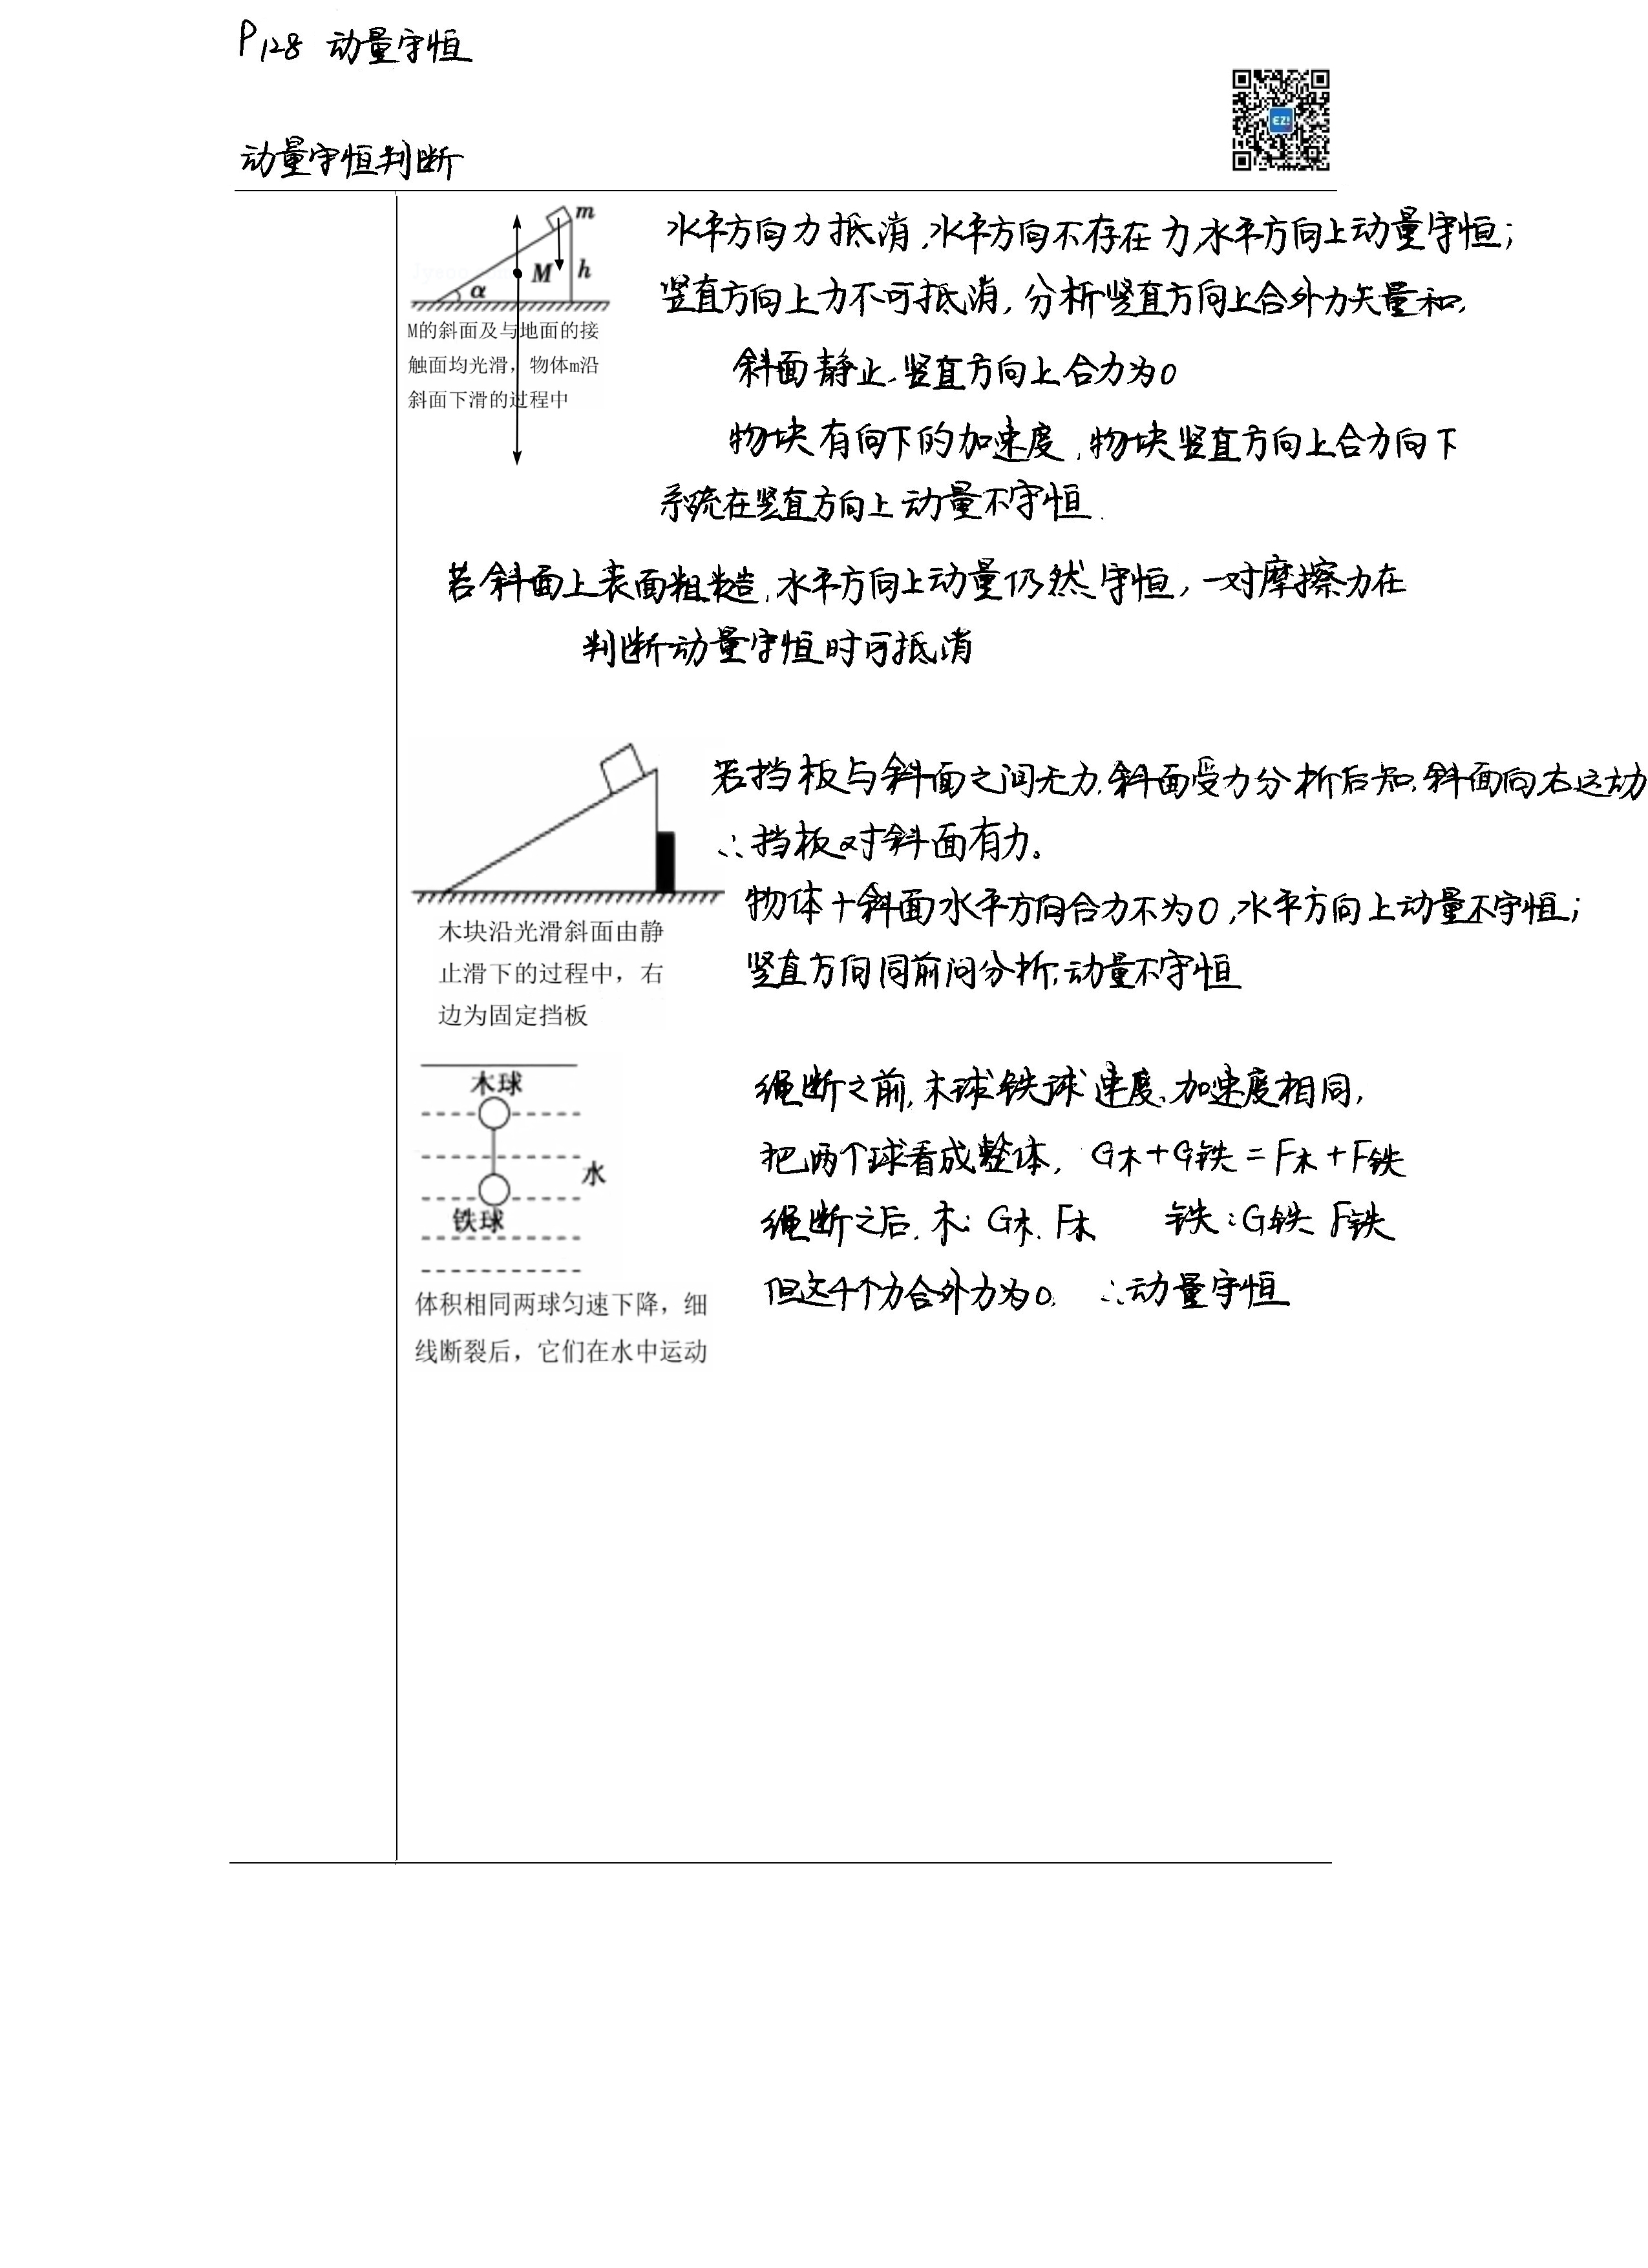 P128 动量守恒
EZ!
动量守恒判断
m
M
h
α
M的斜面及与地面的接
触面均光滑，物体m沿
斜面下滑的过程中
水平方向力抵消,水平方向不存在力,水平方向上动量守恒;
竖直方向上力不可抵消,分析竖直方向上合外力矢量和,
斜面静止,竖直方向上合力为0
物块有向下的加速度,物块竖直方向上合力向下
系统在竖直方向上动量不守恒.
若斜面上表面粗糙,水平方向上动量仍然守恒,一对摩擦力在
判断动量守恒时可抵消
木块沿光滑斜面由静
止滑下的过程中，右
边为固定挡板
若挡板与斜面之间无力,斜面受力分析后知,斜面向右运动
∴挡板对斜面有力。
物体+斜面水平方向合力不为0,水平方向上动量不守恒;
竖直方向同前问分析,动量不守恒
木球
水
铁球
体积相同两球匀速下降，细
线断裂后，它们在水中运动
绳断之前,木球铁球速度、加速度相同,
把两个球看成整体, G木+G铁=F木+F铁
绳断之后.木: G木.F木 铁:G铁 F铁
但这4个力合外力为0. ∴动量守恒